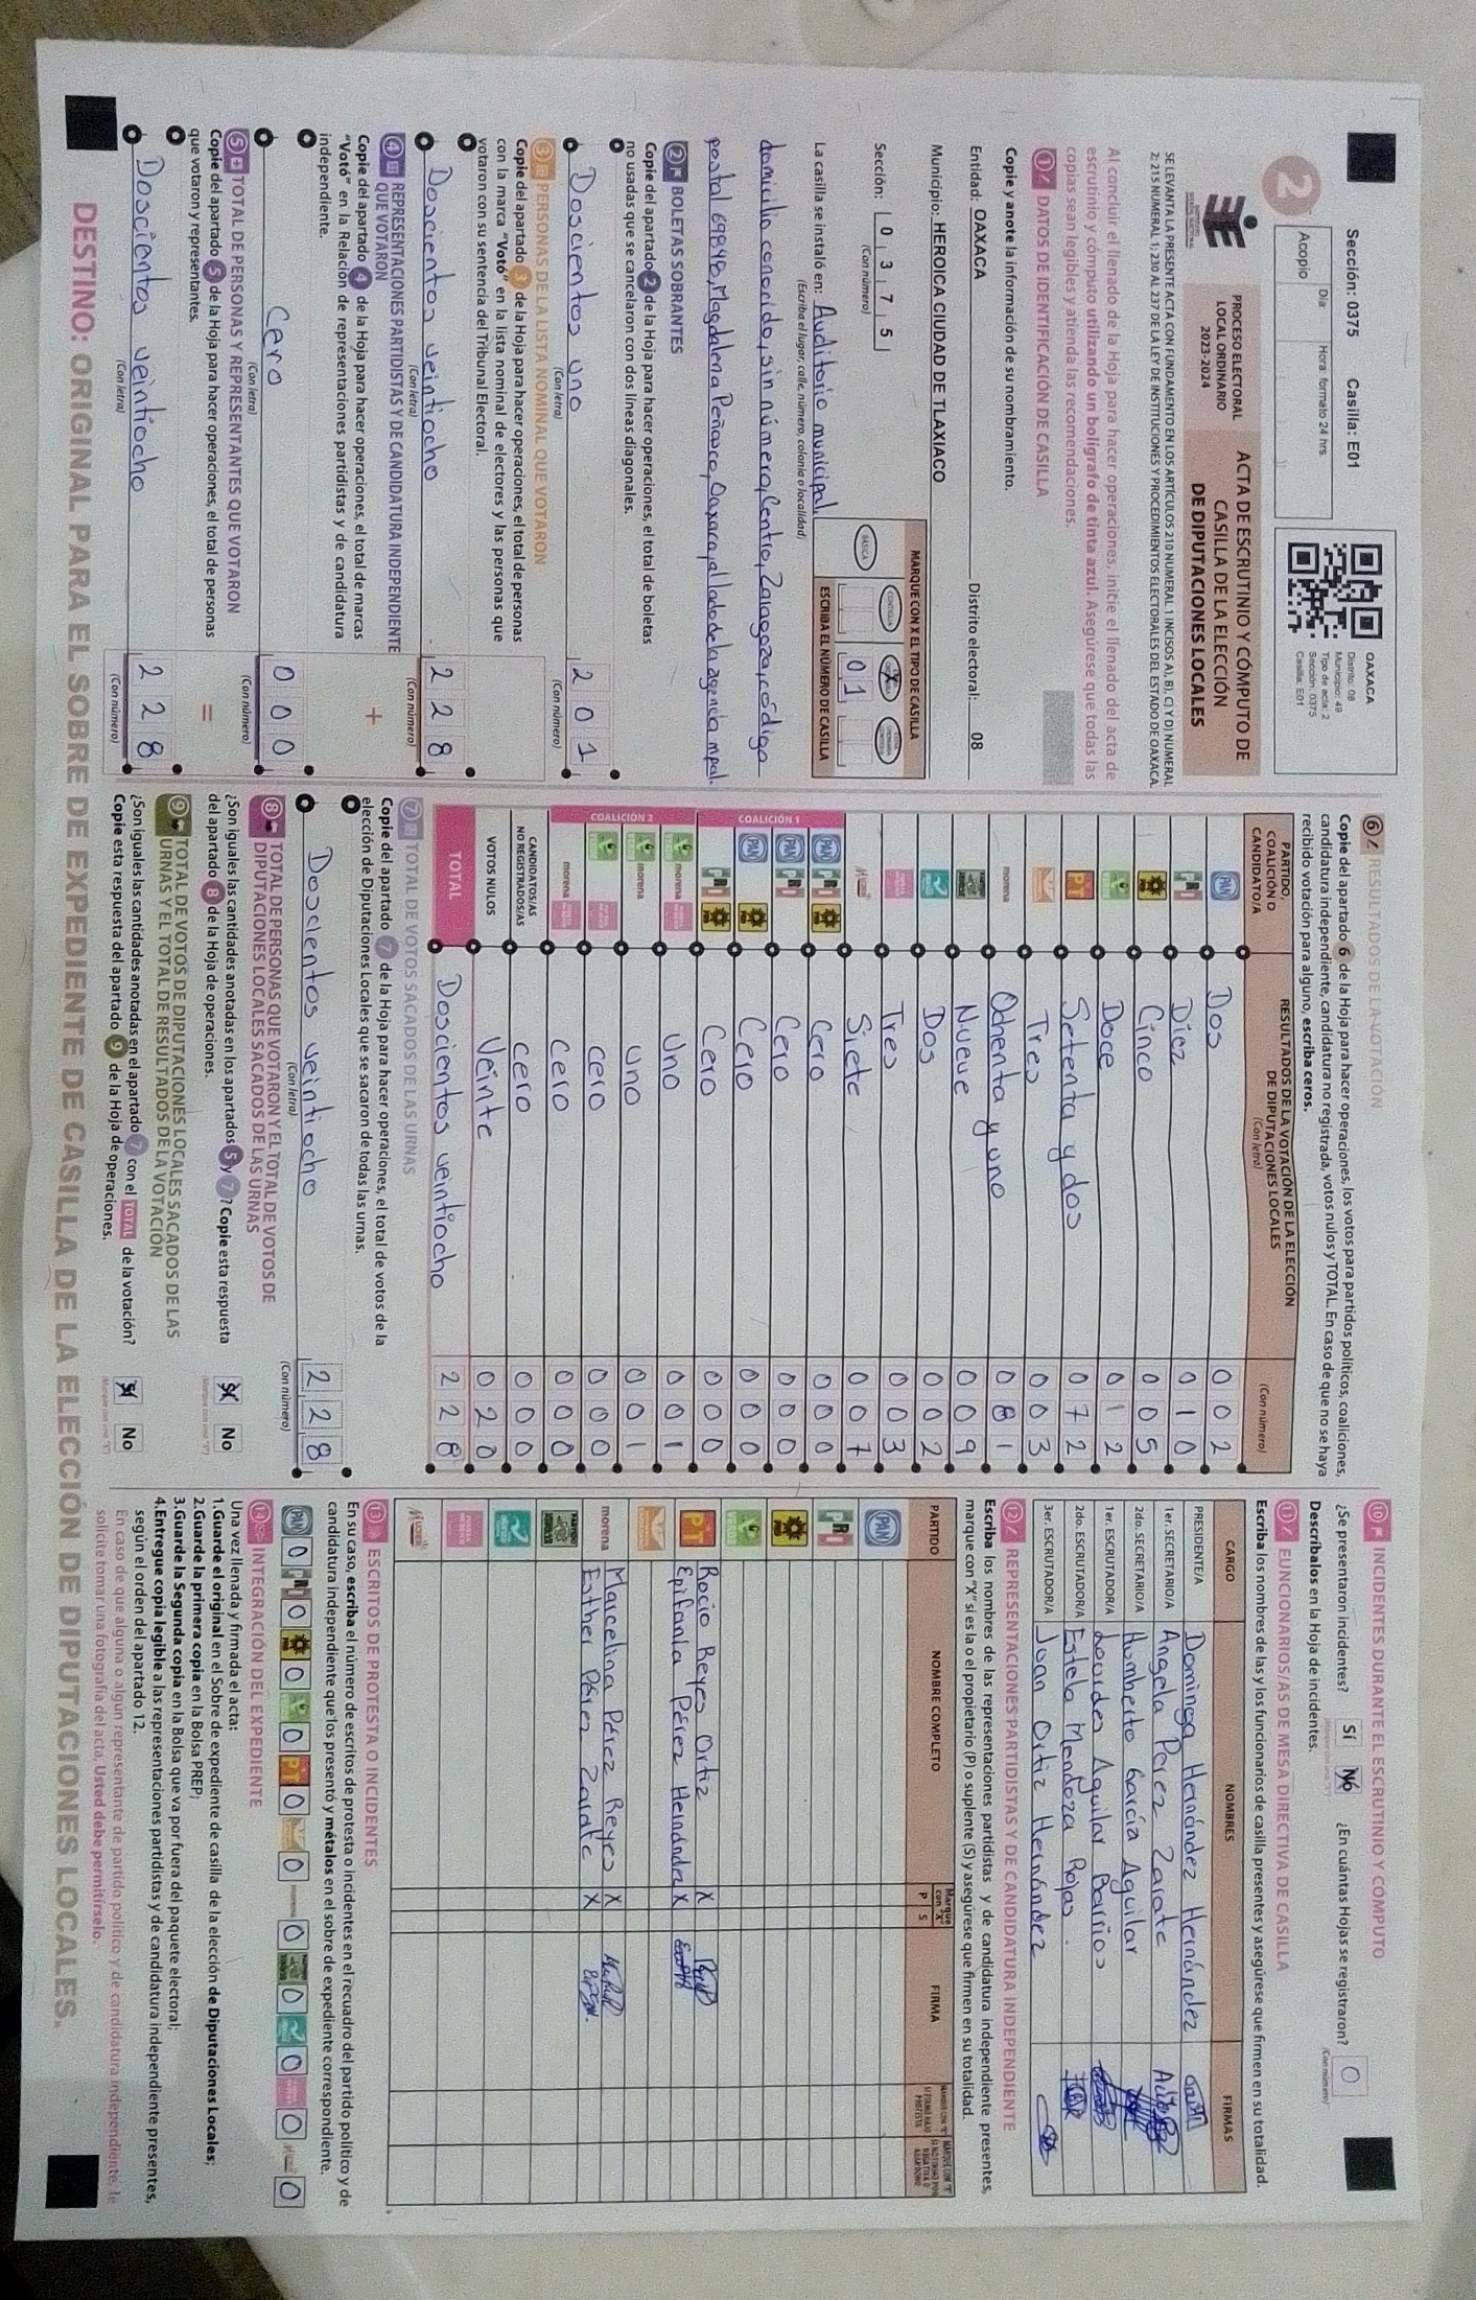 Sección: 0375 Casilla: E01
Día Hora: formato 24 hrs
Acopio
2
OAXACA
Distrito: 08
Municipio: 49
Tipo de acta: 2
Sección: 0375
Casilla: E01
PROCESO ELECTORAL
LOCAL ORDINARIO
2023-2024
ACTA DE ESCRUTINIO Y CÓMPUTO DE
CASILLA DE LA ELECCIÓN
DE DIPUTACIONES LOCALES
SE LEVANTA LA PRESENTE ACTA CON FUNDAMENTO EN LOS ARTÍCULOS 210 NUMERAL 1 INCISOS A), B), C) Y D) NUMERAL
2; 215 NUMERAL 1; 230 AL 237 DE LA LEY DE INSTITUCIONES Y PROCEDIMIENTOS ELECTORALES DEL ESTADO DE OAXACA.
Al concluir el llenado de la Hoja para hacer operaciones, inicie el llenado del acta de
escrutinio y cómputo utilizando un bolígrafo de tinta azul. Asegúrese que todas las
copias sean legibles y atienda las recomendaciones.
1 DATOS DE IDENTIFICACIÓN DE CASILLA
Copie y anote la información de su nombramiento.
Entidad: OAXACA Distrito electoral: 08
Municipio: HEROICA CIUDAD DE TLAXIACO
Sección: 0 3 7 5
(Con número)
MARQUE CON X EL TIPO DE CASILLA
BÁSICA CONTIGUA X
0 1
ESCRIBA EL NÚMERO DE CASILLA
La casilla se instaló en: Auditorio municipal,
(Escriba el lugar, calle, número, colonia o localidad)
domicilio conocido, sin número, Centro, Zaragoza, código
postal 69848, Magdalena Peñasco, Oaxaca, al lado de la agencia mpal.
2 BOLETAS SOBRANTES
Copie del apartado 2 de la Hoja para hacer operaciones, el total de boletas
no usadas que se cancelaron con dos líneas diagonales.
Doscientos uno 2 0 1
(Con letra) (Con número)
3 PERSONAS DE LA LISTA NOMINAL QUE VOTARON
Copie del apartado 3 de la Hoja para hacer operaciones, el total de personas
con la marca "Votó" en la lista nominal de electores y las personas que
votaron con su sentencia del Tribunal Electoral.
Doscientos veintiocho 2 2 8
(Con letra) (Con número)
4 REPRESENTACIONES PARTIDISTAS Y DE CANDIDATURA INDEPENDIENTE
QUE VOTARON
Copie del apartado 4 de la Hoja para hacer operaciones, el total de marcas
"Votó" en la Relación de representaciones partidistas y de candidatura
independiente.
+
Cero 0 0 0
(Con letra) (Con número)
5 TOTAL DE PERSONAS Y REPRESENTANTES QUE VOTARON
Copie del apartado 5 de la Hoja para hacer operaciones, el total de personas
que votaron y representantes.
=
Doscientos veintiocho 2 2 8
(Con letra) (Con número)
6 RESULTADOS DE LA VOTACIÓN
Copie del apartado 6 de la Hoja para hacer operaciones, los votos para partidos políticos, coaliciones,
candidatura independiente, candidatura no registrada, votos nulos y TOTAL. En caso de que no se haya
recibido votación para alguno, escriba ceros.
PARTIDO, COALICIÓN O CANDIDATO/A
RESULTADOS DE LA VOTACIÓN DE LA ELECCIÓN
DE DIPUTACIONES LOCALES
(Con letra) (Con número)
PAN Dos 0 0 2
PRI Diez 0 1 0
PRD Cinco 0 0 5
Doce 0 1 2
PT Setenta y dos 0 7 2
Tres 0 0 3
morena Ochenta y uno 0 8 1
Nueve 0 0 9
Dos 0 0 2
Tres 0 0 3
Siete 0 0 7
COALICIÓN 1
PAN PRI PRD Cero 0 0 0
PAN PRI Cero 0 0 0
PAN PRD Cero 0 0 0
PRI PRD Cero 0 0 0
COALICIÓN 2
morena Uno 0 0 1
morena Uno 0 0 1
Cero 0 0 0
morena Cero 0 0 0
CANDIDATOS/AS NO REGISTRADOS/AS Cero 0 0 0
VOTOS NULOS Veinte 0 2 0
TOTAL Doscientos veintiocho 2 2 8
7 TOTAL DE VOTOS SACADOS DE LAS URNAS
Copie del apartado 7 de la Hoja para hacer operaciones, el total de votos de la
elección de Diputaciones Locales que se sacaron de todas las urnas.
Doscientos veintiocho 2 2 8
(Con letra) (Con número)
8 TOTAL DE PERSONAS QUE VOTARON Y EL TOTAL DE VOTOS DE
DIPUTACIONES LOCALES SACADOS DE LAS URNAS
¿Son iguales las cantidades anotadas en los apartados 5 y 7? Copie esta respuesta
del apartado 8 de la Hoja de operaciones.
Sí No
9 TOTAL DE VOTOS DE DIPUTACIONES LOCALES SACADOS DE LAS
URNAS Y EL TOTAL DE RESULTADOS DE LA VOTACIÓN
¿Son iguales las cantidades anotadas en el apartado 7 con el TOTAL de la votación?
Copie esta respuesta del apartado 9 de la Hoja de operaciones.
Sí No
10 INCIDENTES DURANTE EL ESCRUTINIO Y CÓMPUTO
¿Se presentaron incidentes? Sí No ¿En cuántas Hojas se registraron? 0
Descríbalos en la Hoja de incidentes.
11 FUNCIONARIOS/AS DE MESA DIRECTIVA DE CASILLA
Escriba los nombres de las y los funcionarios de casilla presentes y asegúrese que firmen en su totalidad.
CARGO NOMBRES FIRMAS
PRESIDENTE/A Dominga Hernández Hernández
1er. SECRETARIO/A Angela Perez Zarate
2do. SECRETARIO/A Humberto García Aguilar
1er. ESCRUTADOR/A Lourdes Aguilar Barrios
2do. ESCRUTADOR/A Estela Mendoza Rojas.
3er. ESCRUTADOR/A Juan Ortiz Hernández
12 REPRESENTACIONES PARTIDISTAS Y DE CANDIDATURA INDEPENDIENTE
Escriba los nombres de las representaciones partidistas y de candidatura independiente presentes,
marque con "X" si es la o el propietario (P) o suplente (S) y asegúrese que firmen en su totalidad.
PARTIDO NOMBRE COMPLETO Marque con "X" P S FIRMA
PAN
PRI
PRD
PT Rocio Reyes Ortiz X
Epifania Pérez Hernández X
morena Marcelina Pérez Reyes X
Esther Pérez Zarate X
13 ESCRITOS DE PROTESTA O INCIDENTES
En su caso, escriba el número de escritos de protesta o incidentes en el recuadro del partido político y de
candidatura independiente que los presentó y métalos en el sobre de expediente correspondiente.
PAN 0 PRI 0 PRD 0 0 PT 0 0 morena 0 0 0 0 0
14 INTEGRACIÓN DEL EXPEDIENTE
Una vez llenada y firmada el acta:
1.Guarde el original en el Sobre de expediente de casilla de la elección de Diputaciones Locales;
2.Guarde la primera copia en la Bolsa PREP;
3.Guarde la Segunda copia en la Bolsa que va por fuera del paquete electoral;
4.Entregue copia legible a las representaciones partidistas y de candidatura independiente presentes,
según el orden del apartado 12.
En caso de que alguna o algún representante de partido político y de candidatura independiente, le
solicite tomar una fotografía del acta, Usted debe permitírselo.
DESTINO: ORIGINAL PARA EL SOBRE DE EXPEDIENTE DE CASILLA DE LA ELECCIÓN DE DIPUTACIONES LOCALES.